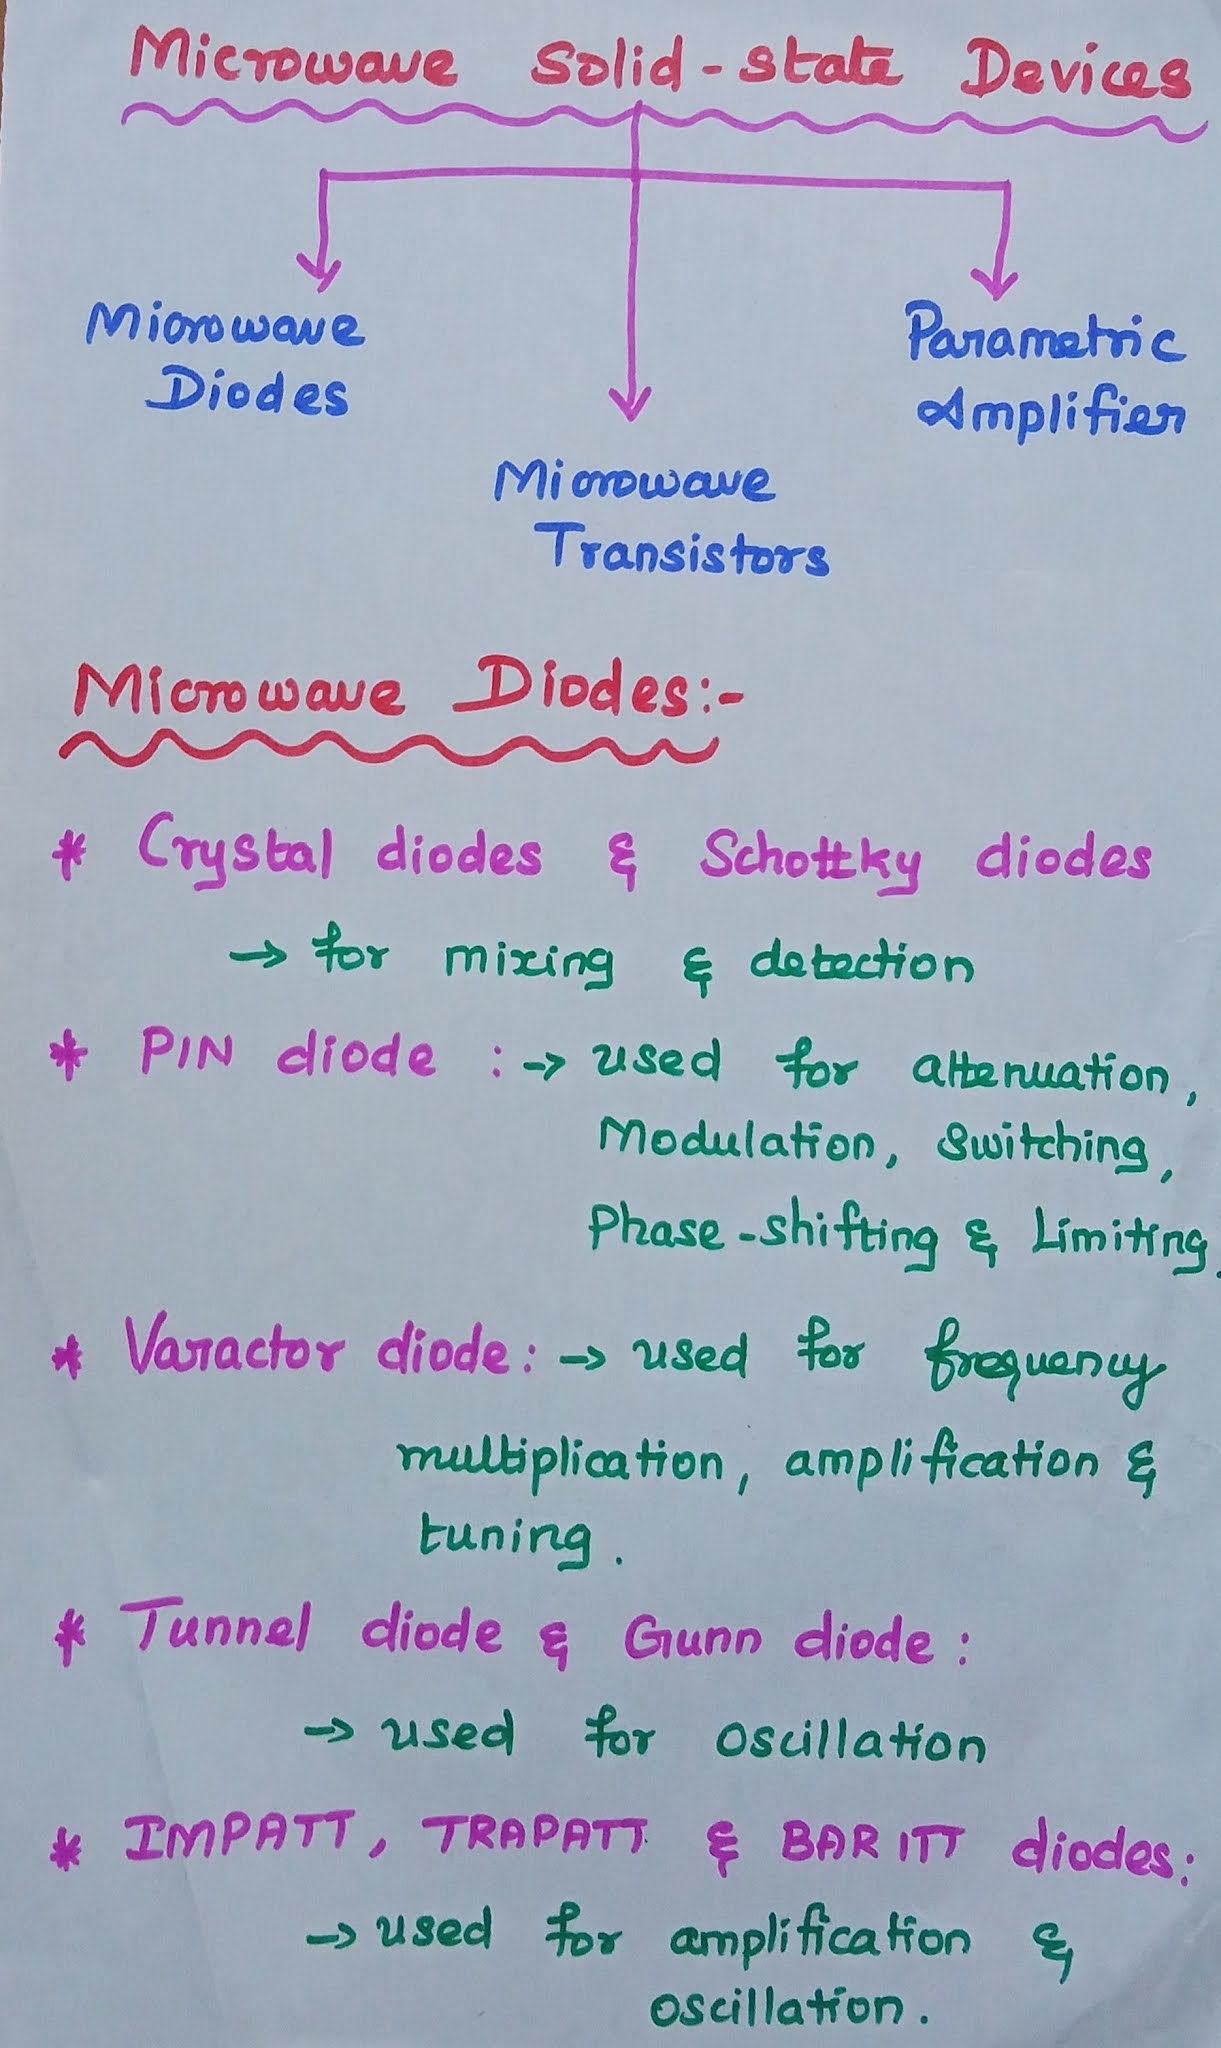 Microwave Solid-state Devices
Microwave
Diodes
Parametric
Amplifier
Microwave
Transistors
Microwave Diodes:-
* Crystal diodes & Schottky diodes
→ for mixing & detection
* PIN diode : → used for attenuation,
Modulation, Switching,
Phase-shifting & Limiting.
* Varactor diode: → used for frequency
multiplication, amplification &
tuning.
* Tunnel diode & Gunn diode:
→ used for oscillation
* IMPATT, TRAPATT & BARITT diodes:
→ used for amplification &
oscillation.